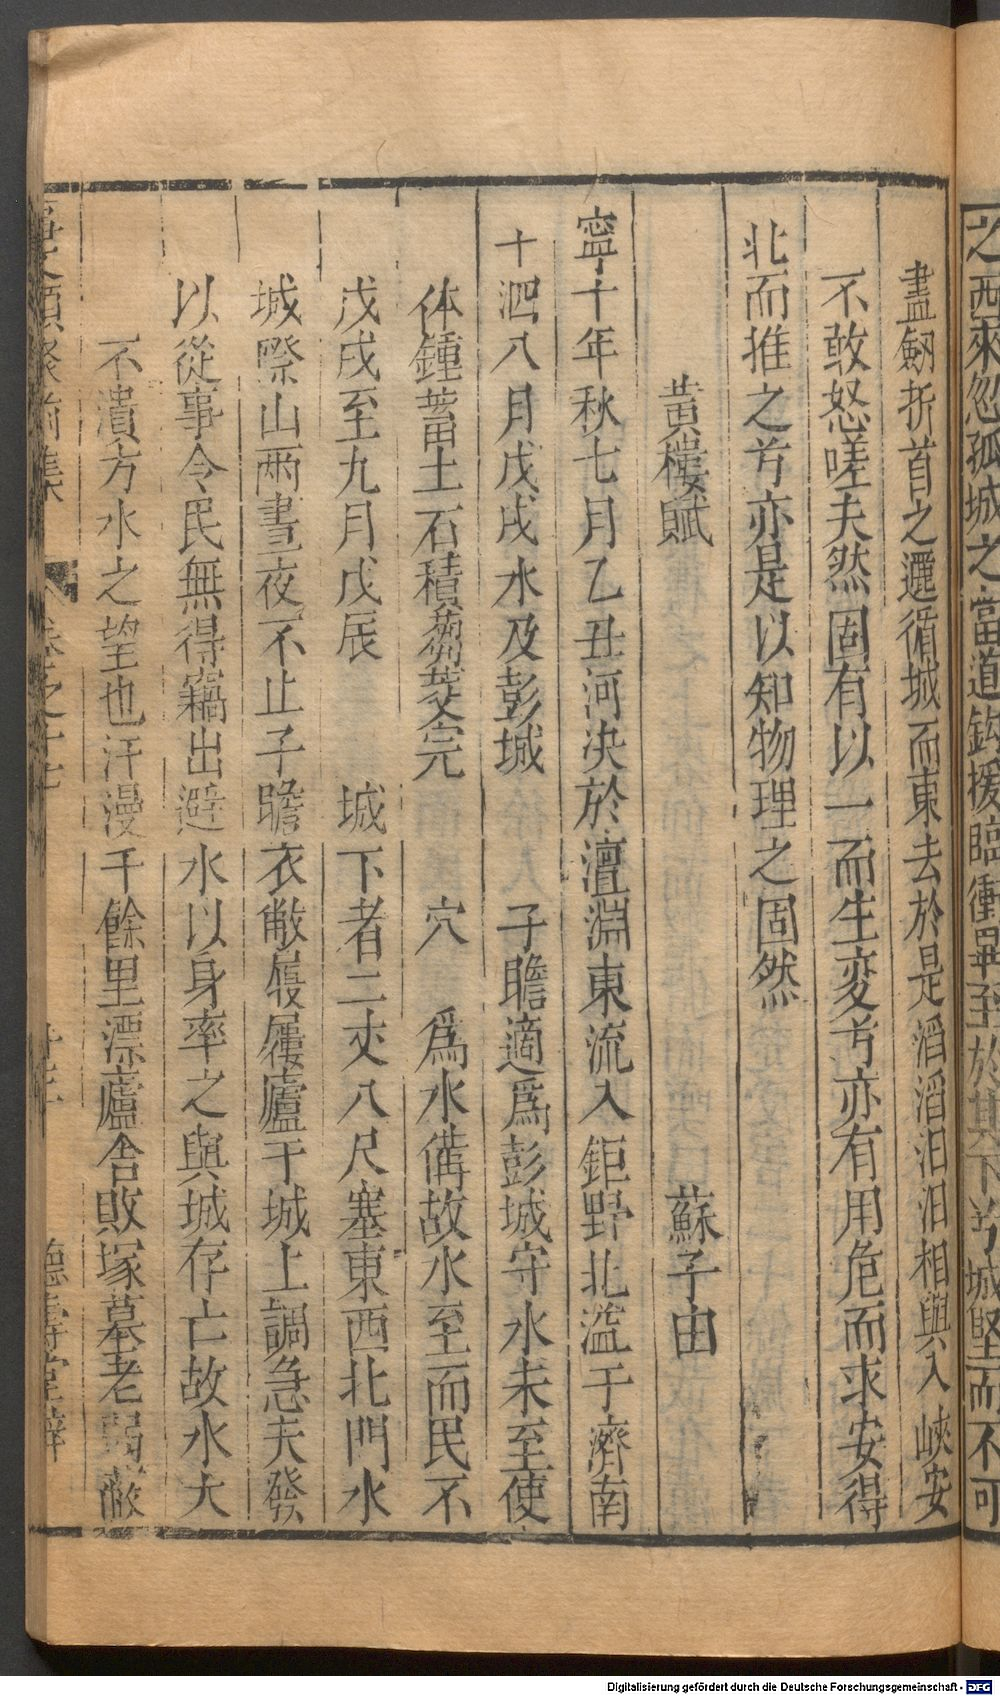 之西來忽孤城之當道鈎援臨衝畢至於其下兮城堅而不可
盡劒折首之邐循城而東去於是滔滔汨汨相與入峽安
不敢怒嗟夫然固有以一而生変兮亦有用危而求安得
北而推之兮亦是以知物理之固然
黄樓賦 蘇子由
寧十年秋七月乙丑河決於澶淵東流入鉅野北溢于濟南
十泗八月戊戌水及彭城 子瞻適爲彭城守水未至使
体鍾蓄土石積芻茭完 穴 爲水備故水至而民不
戊戌至九月戊辰 城下者二丈八尺塞東西北門水
城際山兩晝夜不止子瞻衣敝屨屨廬于城上調急夫發
以從事令民無得竊出避水以身率之與城存亡故水大
不潰方水之望也汗漫千餘里漂廬舍敗塚墓老弱蔽
集 卷之十七 德壽堂梓
Digitalisierung gefördert durch die Deutsche Forschungsgemeinschaft - DFG